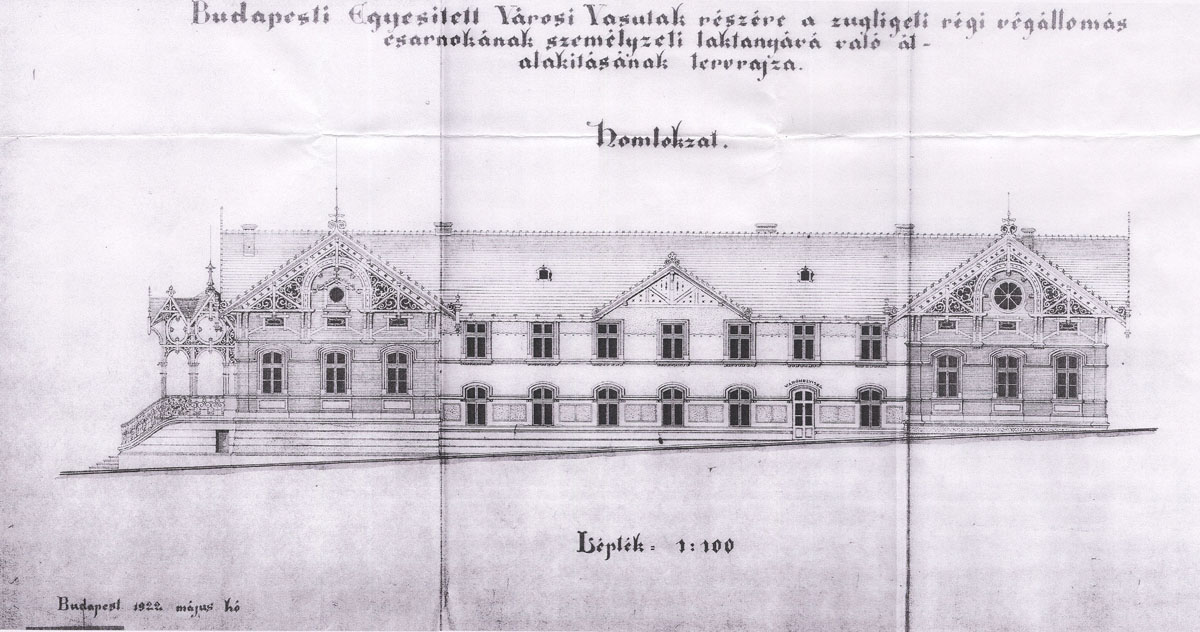 Budapesti Egyesitett Városi Vasutak részére a zugligeti régi végállomás
csarnokának személyzeti laktanyává való át-
alakitásának tervrajza.
Homlokzat.
VÁRÓHELYISÉG
Lépték = 1:100
Budapest 1922. május hó